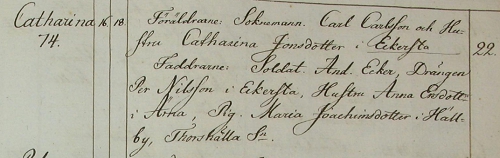 Catharina 16. 18. Föräldrarne: Soknemann. Carl Carlsson och Hu-
74. stru Catharina Jonsdotter i Eckersta 22.
Faddrarne: Soldat. And. Ecker, Drängen
Per Nilsson i Eckersta, Hustru Anna Ersdott-
i Ärna, Pig. Maria Joachimsdotter i Häll-
by, Thorshälla Sn.